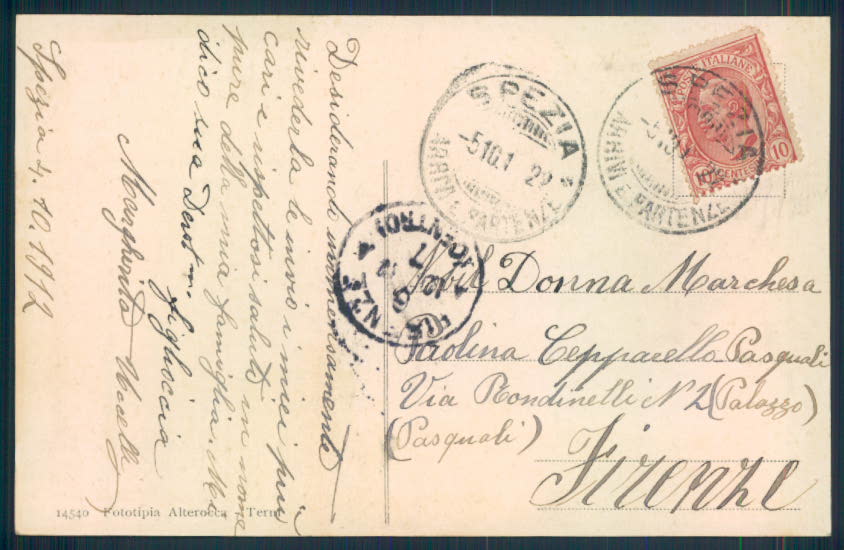 Spezia 4.10.1912
Desiderando immensamente
rivederla le invio i miei più
cari e rispettosi saluti in nome
pure della mia famiglia. Mi
dico sua Devot.ma figlioccia
Margherita
SPEZIA
ARRIVI E PARTENZE
POSTE ITALIANE
10 CENTESIMI 10
SPEZIA
ARRIVI E PARTENZE
FIRENZE
Nobil Donna Marchesa
Paolina Cepparello Pasquali
Via Rondinelli N 2 (Palazzo)
(Pasquali)
Firenze
14540 Fototipia Alterocca - Terni